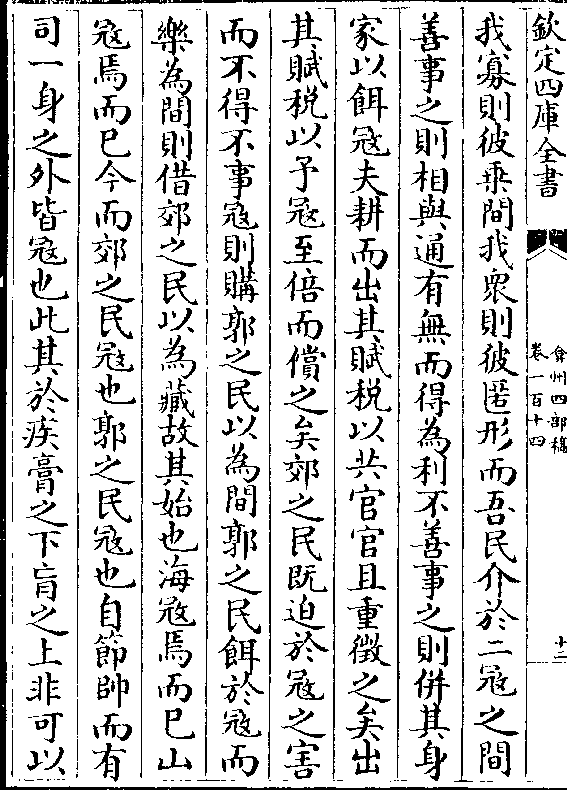 欽定四庫全書
弇州四部稿
卷一百十四
十二
我寡則彼乗間我衆則彼匿形而吾民介於二冦之間
善事之則相與通有無而得為利不善事之則併其身
家以餌冦夫耕而出其賦稅以共官官且重徵之矣出
其賦稅以予冦至倍而償之矣郊之民既迫於冦之害
而不得不事冦則購郭之民以為間郭之民餌於冦而
樂為間則借郊之民以為藏故其始也海冦焉而巳山
冦焉而巳今而郊之民冦也郭之民冦也自節帥而有
司一身之外皆冦也此其於疾膏之下肓之上非可以